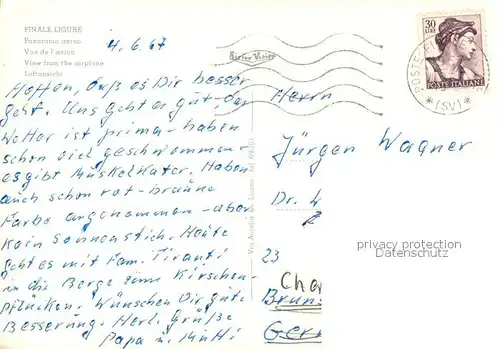 FINALE LIGURE
Panorama aereo
Vue de l'avion
View from the airplane
Luftansicht
4.6.67
Hoffen, daß es Dir besser
geht. Uns geht es gut - das
Wetter ist prima - haben
schon viel geschwommen -
es gibt Muskelkater. Haben
auch schon rot-braune
Farbe angenommen - aber
kein Sonnenstich. Heute
geht es mit Fam. Tiranti
in die Berge zum Kirschen-
pflücken. Wünschen Dir gute
Besserung. Herl. Grüße
Papa u. Mutti
30
LIRE
POSTE ITALIANE
POSTE
(SV)
Herrn
Jürgen Wagner
Dr.
privacy protection
Datenschutz
23
Cha
Brun
Ger